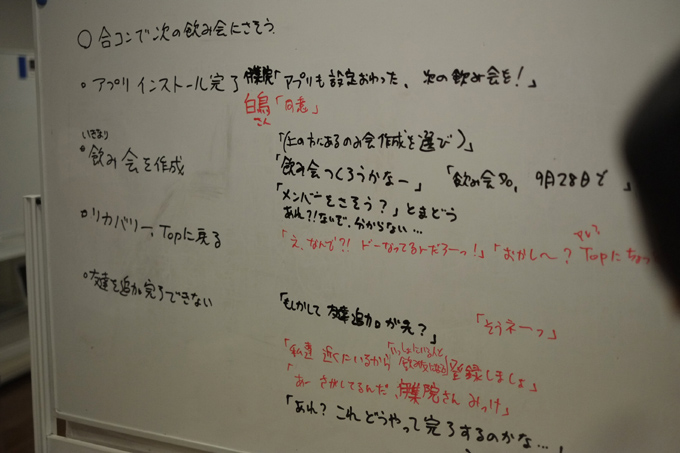 ○合コンで次の飲み会にさそう。
○アプリインストール完了 伊集院「アプリも設定おわった、次の飲み会を!」
白鳥さん「同意」
いきなり
○飲み会を作成
「(上の方にあるのみ会作成を選び)」
「飲み会つくろうかなー」 「飲み会 9月28日と 」
「メンバーをさそう?」とまどう
○リカバリー、Topに戻る
あれ?!ないぞ、分からない…
「え、なんで?! ドーなってるんだろーっ!」「おかしへ? Topにちょっ
○友達を追加完了できない
「もしかして 友達追加が先?」 「そうネーッ」
「私達 近くにいるから 登録しましょ」
「あー さがしてるんだ、伊集院さん みっけ」
「あれ? これどうやって完了するのかな…」